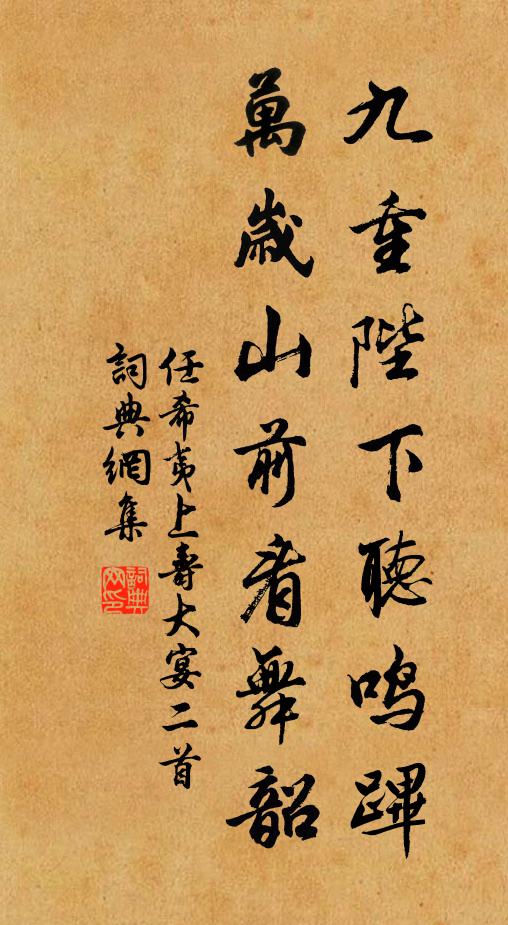 九重陛下聽鳴蹕
萬歲山前看舞韶
任希夷上壽大宴二首
詞典網集
詞典網印